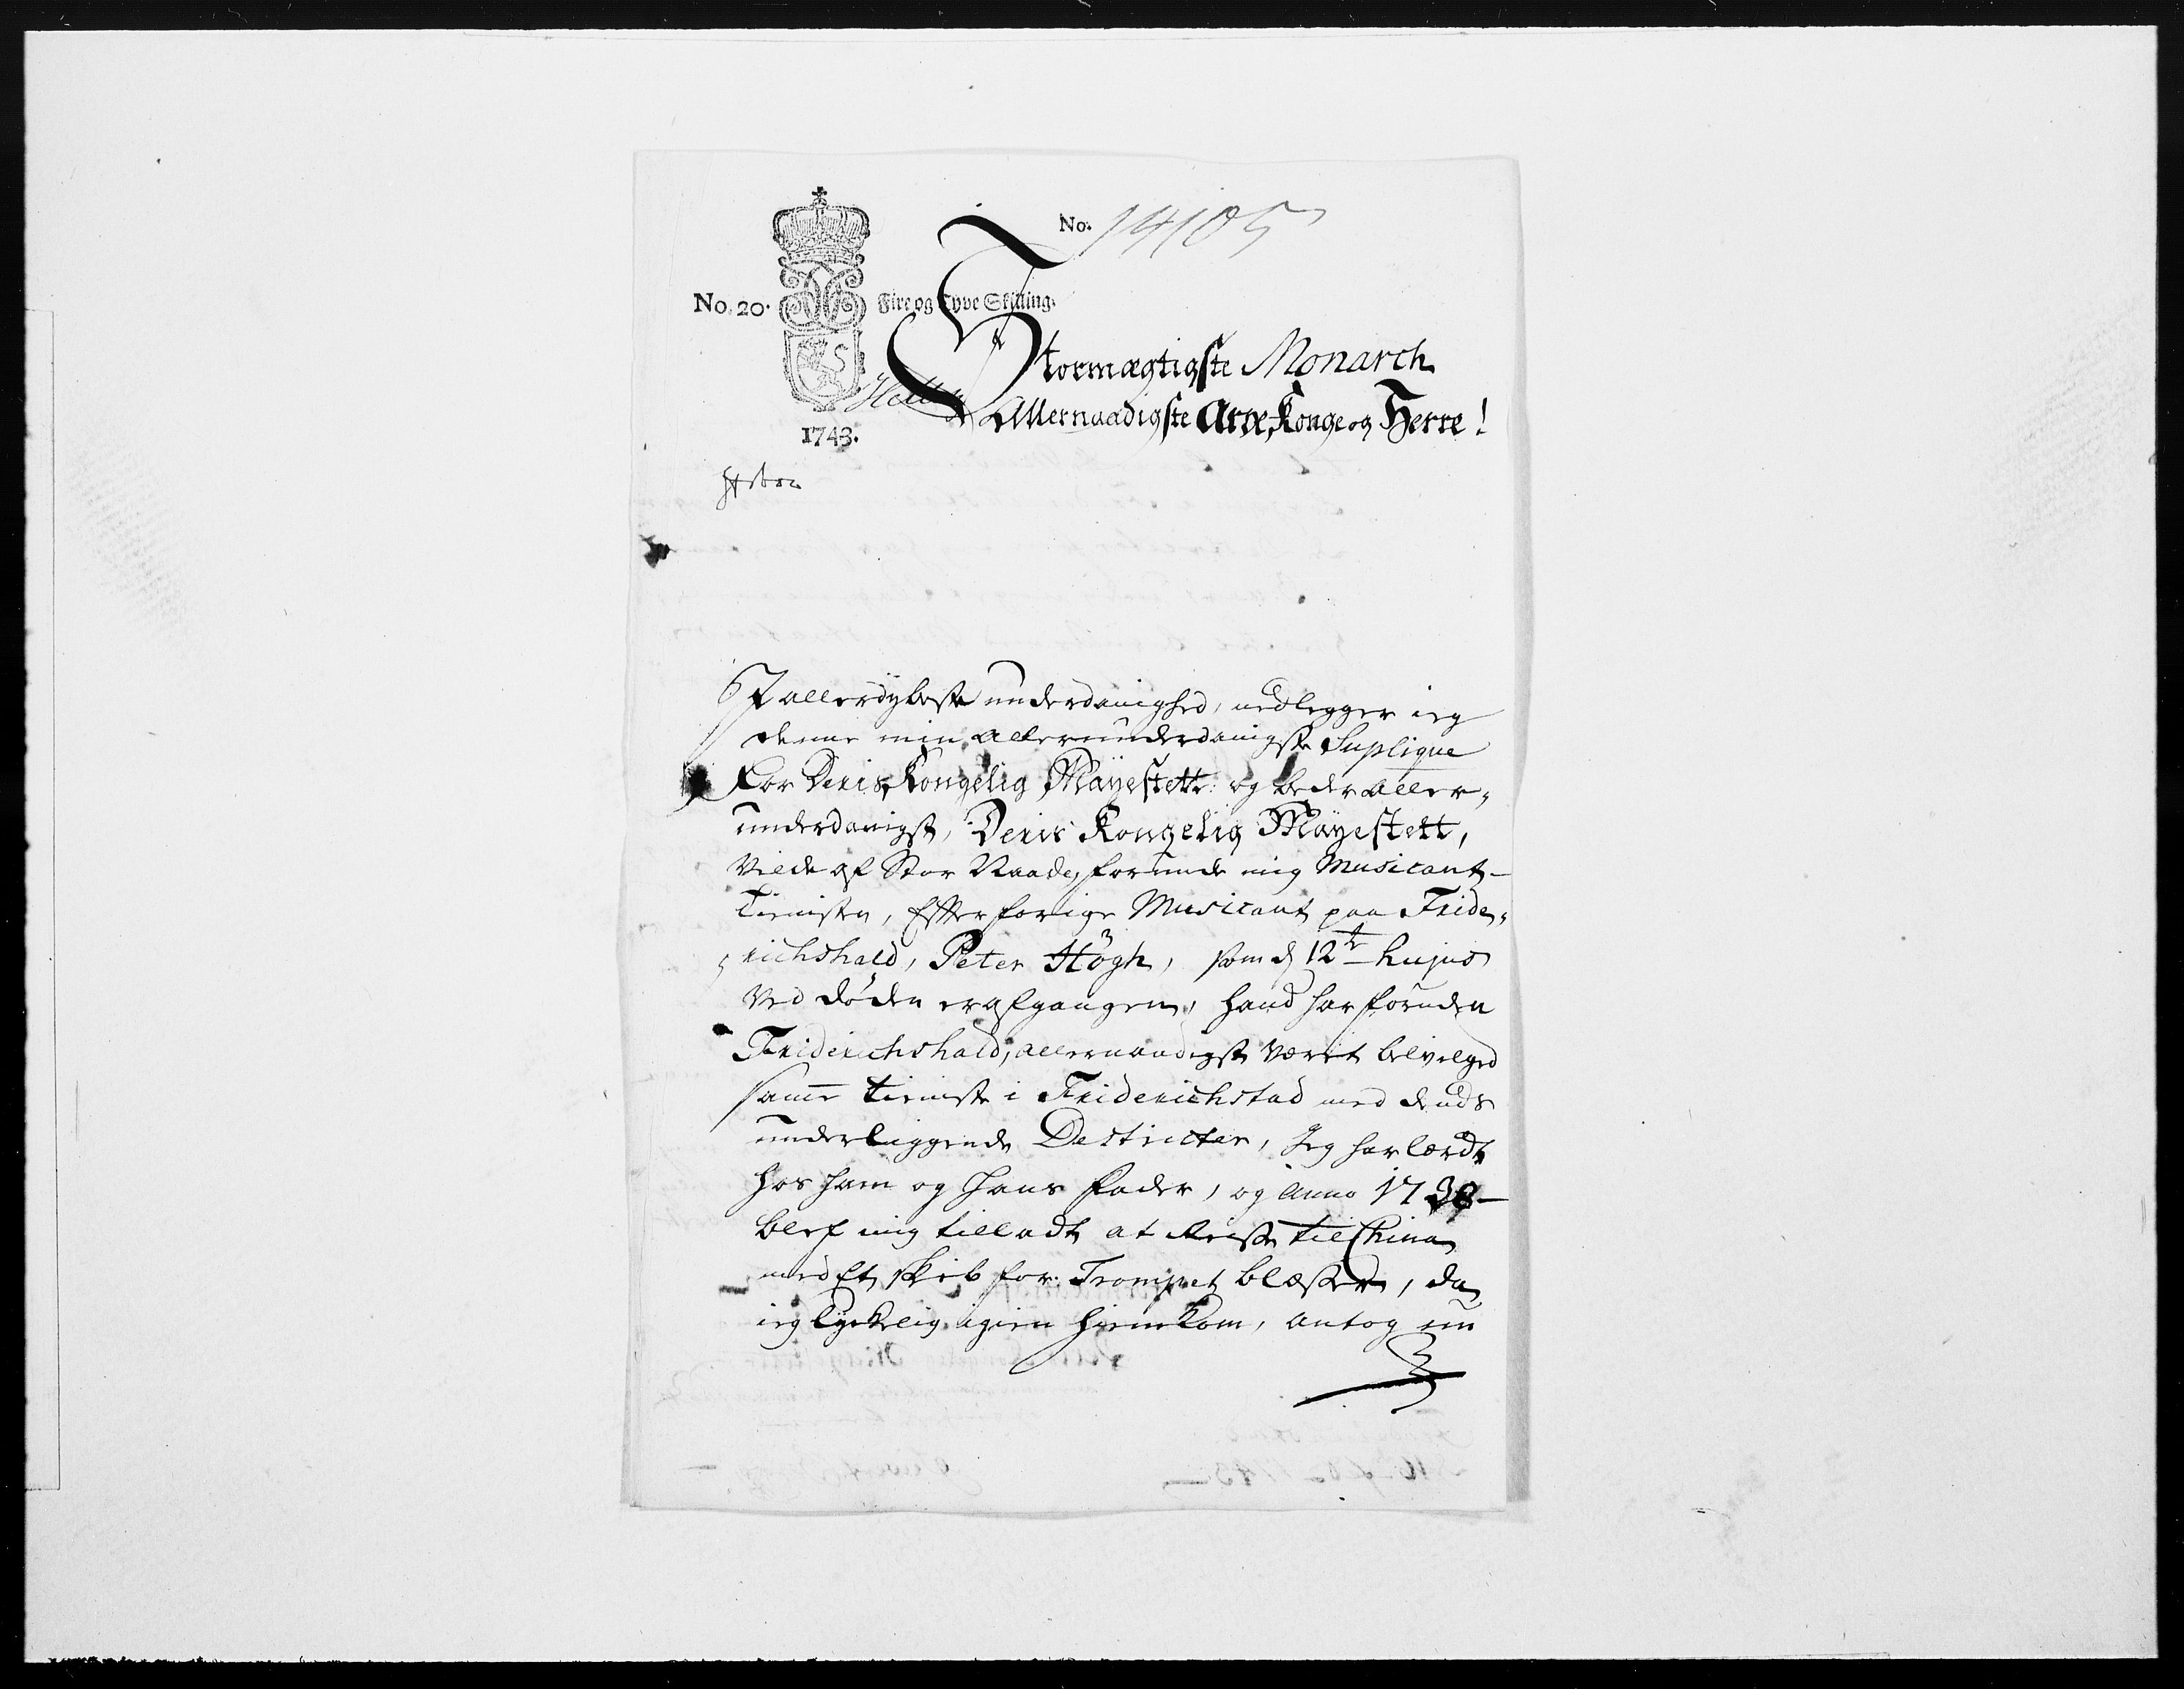 No. 14105
No. 20. Fire og Tyve Skilling.
Stormægtigste Monarch
Allernaadigste Arve Konge og Herre!
1743.
I allerdybeste underdanighed, nedlegger ieg
denne min allerunderdanigste Suplique
For Deris Kongelig Mayestett: og beder aller„
underdanigst, Deris Kongelig Mayestett,
Vilde af Stor Naade, forunde mig Musicant-
Tienisten, Effter forige Musicant paa Fride„
„richshald, Peter Högh, som d 12te hujus
Ved døden er afgangen, hand har foruden
Friderichshald, allernaadigst været bevilged
samme tieniste i Friderichstad med dends
underliggende Destricter, Jeg har lærdt
hos ham og hans fader, og Anno 1738-
blef mig tilladt at Reise til China
med Et skib for Trompet blæsser, da
ieg lyckelig igien hiemkom, antog nu